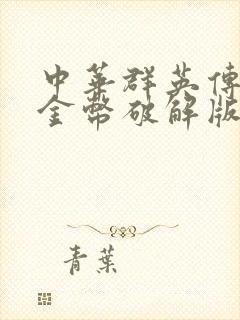 中華群英傳
金幣破解版
青葉